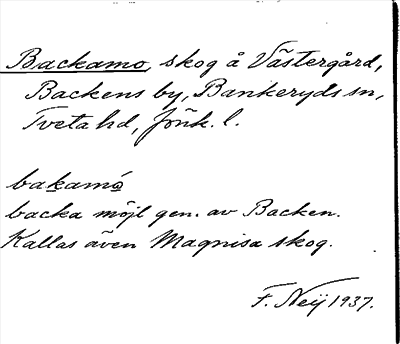 Backamo, skog å Västergård,
Backens by, Bankeryds sn,
Tveta hd, Jönk. l.
bakamo
backa möjl gen. av Backen.
Kallas även Magnisa skog.
F. Neij 1937.